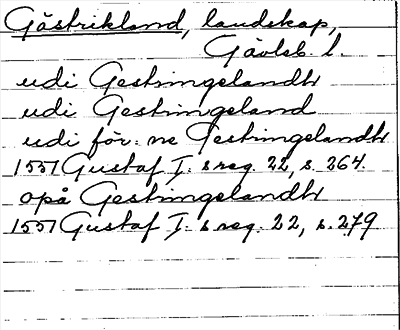 Gästrikland, landskap,
Gävleb. l.
udi Gestringelandh
udi Gestringeland
udi för:ne Gestringelandh
1551 Gustaf I:s reg. 22, s. 264.
opå Gestringelandh
1551 Gustaf I:s reg. 22, s. 279